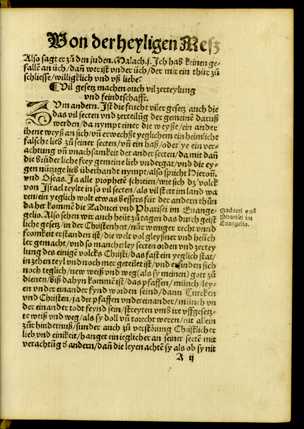 Von der heyligen Mesz
Also sagt er zů den juden. Malach. j. Ich hab keinen ge
fallen an üch/ dan wer ist vnder üch/ der mir ein thür zů
schliesse/ williglich vnd vß liebe
Vil gesetz machen ouch vil zerteylung
vnd feindtschafft.
Zum andern. Ist die frucht viler gesetz auch die
das vil secten vnd zerteilūg der gemeine daruß
werden/ da nympt einer die weyse/ ein ander
ihene weyß an sich/ vn̄ erwechst yeglichem ein heimliche
falsche lieb zů seiner secten/ vn̄ ein haß/ oder ye ein ver
achtung vn̄ vnachtsamkeit der ander secten/ da mit dan̄
die brüderliche frey gemeine lieb vndergat/ vnd die ey
gen nützige lieb überhandt nympt/ also spricht Hierem̄.
vnd Oseas. Ja alle prophete schrien/ wie sich dz volck
von Israel teylte in so vil secten/ als vil stett im land war
ren/ ein yeglich wolt etwas bessers für der andern thůn
da her kommē die Zaducei vnd Pharisei im Euange-
gelio. Also sehen wir auch heüt zů tagen das durch geist
liche gesetz/ in der Christenheit/ nür wenger recht vnd
fromkeit erstanden ist/ die welt vol gleyßner vnd heüch
ler gemacht/ vnd so mancherley secten orden vnd zertey
lung des einige volcks Christi/ das fast ein yeglich stat/
in zehen teyl vnd noch mer geteilt ist/ vnd erfinden sich
noch teglich/ new weiß vnd weg/ als sy meinē/ gott zů
dienen/ biß dahyn kommē ist/ das pfaffen/ münch/ ley-
en einander fynd worden seind/ dann Türcken
vnd Christen. ja der pfaffen vndereinander/ münch vn̄
der einander todt feynd sein/ streyten vmb ire vffgesetz
te weiß vnd weg/ als sy doll vn̄ toreche weren/ nit allein
zů hindernuß/ sunder auch zů verstörung Christlicher
lieb vnd einikeit/ hanget ein ieglicher an seiner secte mit
verachtūg ð andern/ dan̄ die leyen achtē sy als ob sy nit
A ij
Zaducei vnd
Pharisei im
Euangelio.